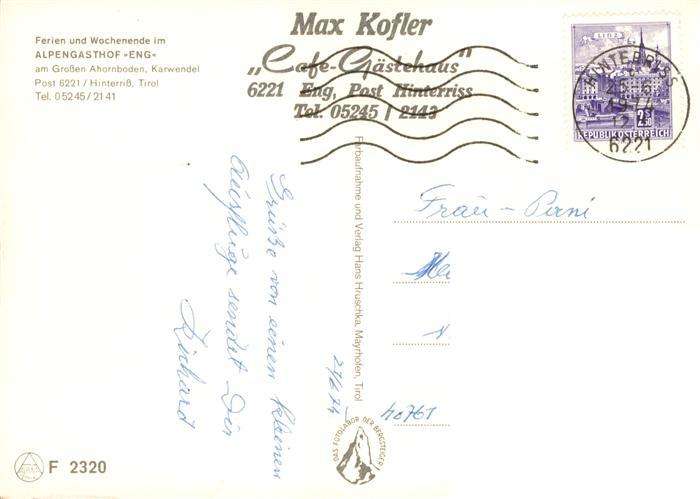 Ferien und Wochenende im
ALPENGASTHOF »ENG«
am Großen Ahornboden, Karwendel
Post 6221 / Hinterriß, Tirol
Tel. 05245/2141
Max Kofler
„Cafe-Gästehaus"
6221 Eng, Post Hinterriss
Tel. 05245 / 2143
LINZ
2S50
REPUBLIK ÖSTERREICH
6221
Grüße von einem kleinen
Ausfluge sendet Dir
Richard
27/6 74
Farbaufnahme und Verlag Hans Hruschka, Mayrhofen, Tirol
Frau
DAS FOTOLABOR DER BERGSTEIGER
F 2320